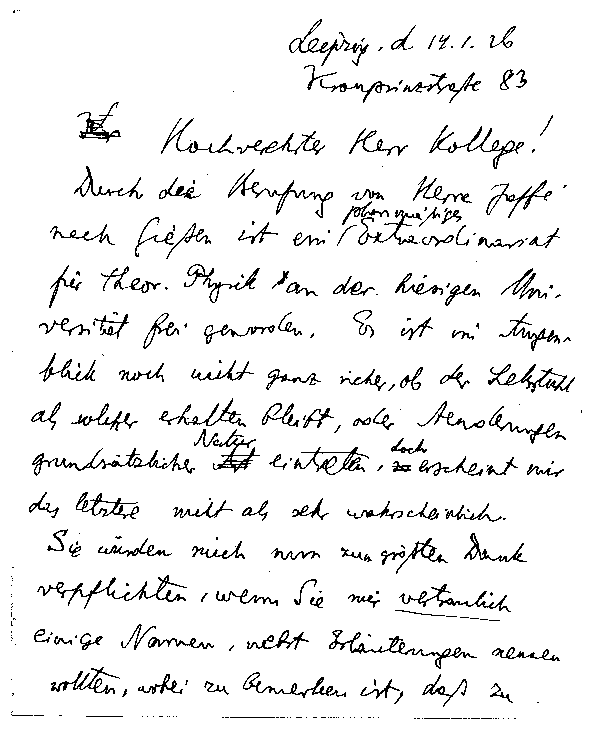 Leipzig, d 14.1.26
Kronprinzstraße 83
Hochverehrter Herr Kollege!
Durch die Berufung von Herrn Jaffé
nach Gießen ist ein planmäßiges Extraordinariat
für theor. Physik an der hiesigen Uni-
versität frei geworden. Es ist im Augen-
blick noch nicht ganz sicher, ob der Lehrstuhl
als solcher erhalten bleibt, oder Aenderungen
grundsätzlicher Natur eintreten, doch erscheint mir
das letztere nicht als sehr wahrscheinlich.
Sie würden mich nun zum größten Dank
verpflichten, wenn Sie mir vertraulich
einige Namen, nebst Erläuterungen nennen
wollten, wobei zu bemerken ist, daß zu